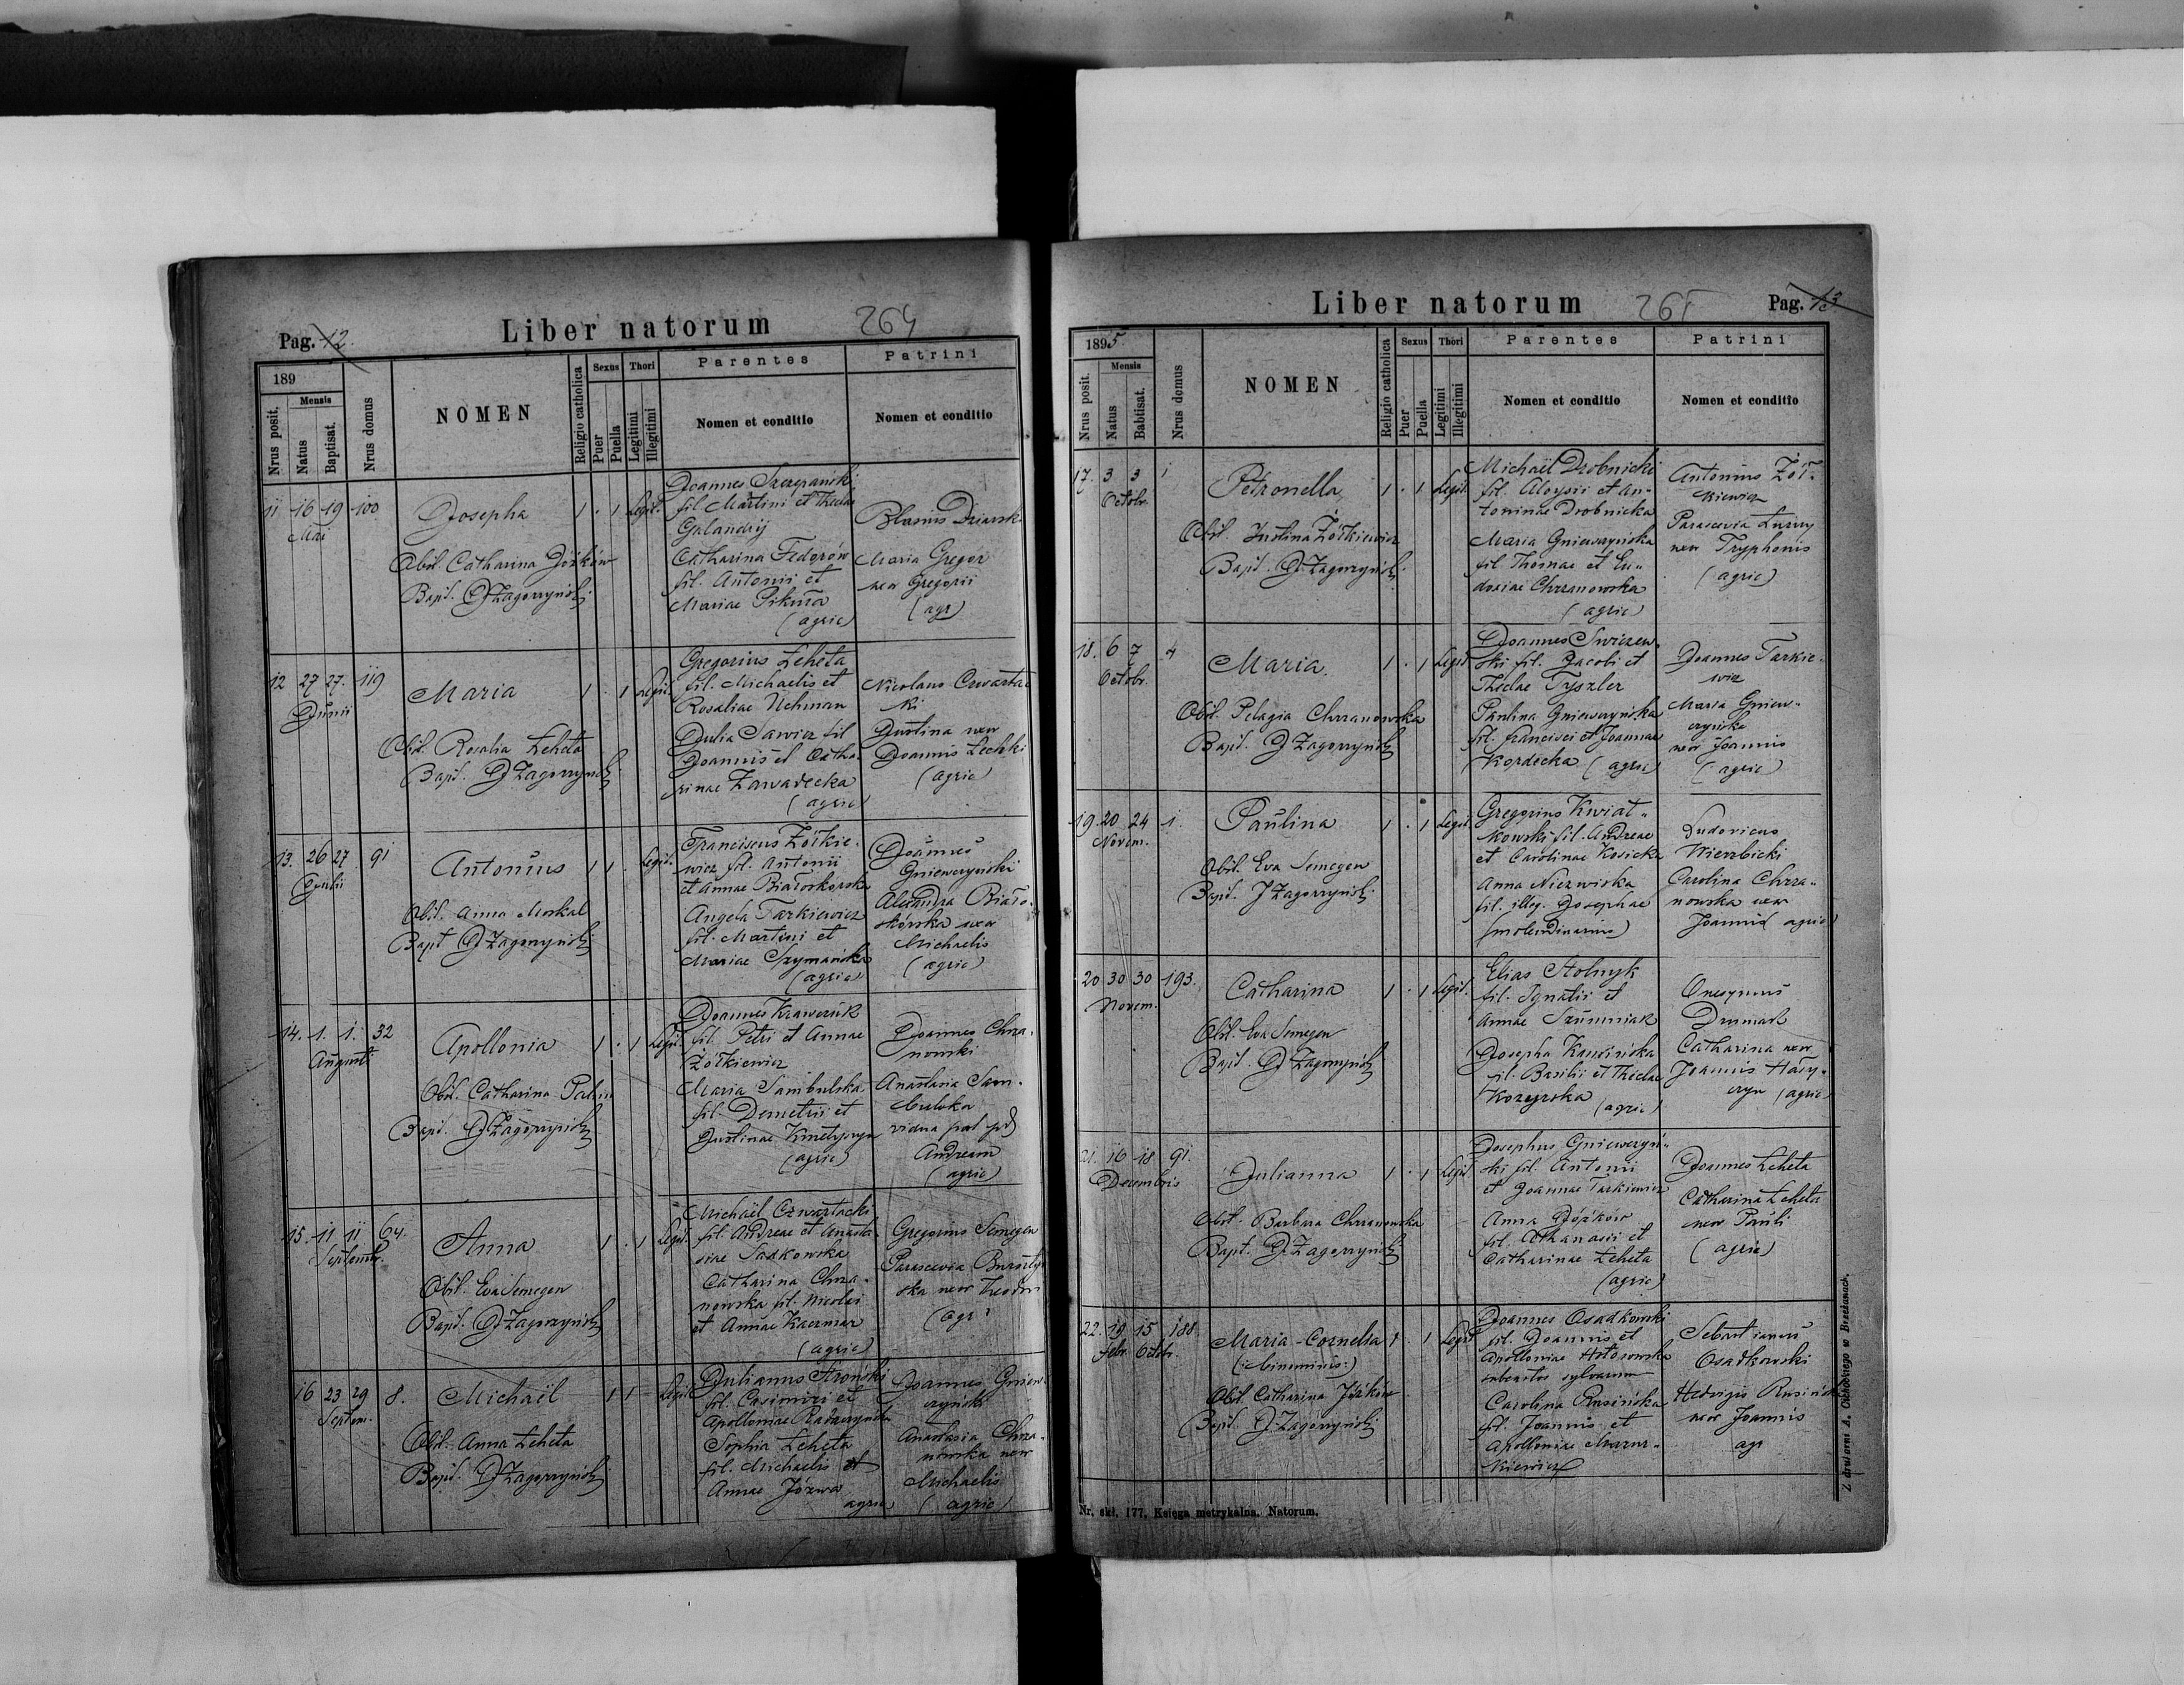 Pag. 12.
Liber natorum
264
189
Nrus posit.
Mensis
Natus
Baptisat.
Nrus domus
NOMEN
Religio catholica
Sexus
Puer
Puella
Thori
Legitimi
Illegitimi
Parentes
Nomen et conditio
Patrini
Nomen et conditio
11 16 19 100
Mai
Josepha
1 . 1 Legit.
Obst. Catharina Józków
Bapt. J Zagórzyński
Joannes Szczepański
fil Martini et Theclae
Catharina Fedorów
fil. Antonii et
Mariae Pikuła
(agric)
Blasius
Maria Gregor
uxor Gregorii
(agr)
12 27 27. 119
Junii
Maria
1 . 1 Legit.
Obst. Rosalia Leheta
Bapt. J Zagórzyński
Gregorius Leheta
fil. Michaelis et
Rosaliae Uchman
Julia Sawicz fil
Joannis et Catha-
rinae Zawadecka
(agric)
Nicolaus Czwartac
ki
Justina uxor
Joannis Lechki
(agric)
13. 26 27 91
Julii
Antonius
1 1 . Legit.
Obst. Anna Moskal
Bapt J Zagórzyński
Franciscus Żółkie-
wicz fil. Antonii
et Annae Białoskórska
Angela Tarkiewicz
fil. Martini et
Mariae Szymańska
(agric)
Joannes
Gniewczyński
Alexandra Biało-
skórska uxor
Michaelis
(agric)
14. 1. 1. 32
Augusti
Apollonia
1 . 1 Legit.
Obst. Catharina
Bapt. J Zagórzyński
Joannes Krawczuk
fil. Petri et Annae
Żółkiewicz
Maria Sambulska
fil. Demetrii et
Justinae
(agric)
Joannes Chrza-
nowski
Anastasia Sam-
bulska
vidua post
Andream
(agric)
15. 11 11 64.
Septembr.
Anna
1 . 1 Legit.
Obst. Eva Semegen
Bapt. J Zagórzyński
Michaël Czwartacki
fil. Andreae et Anasta-
siae Sadkowska
Catharina Chrza-
nowska fil. Nicolai
et Annae Kaczmar
(agric)
Gregorius Semegen
Parascevia
ska uxor Theodori
(agr)
16 23 29 8.
Septem.
Michaël
1 1 - Legit
Obst. Anna Leheta
Bapt. J Zagórzyński
Julianus
fil. Casimiri et
Apolloniae
Sophia Leheta
fil. Michaelis et
Annae Józwa
agric
Joannes Gniew-
czyński
Anastasia Chrza-
nowska uxor
Michaelis
(agric)
Liber natorum
265
Pag. 13
1895.
Nrus posit.
Mensis
Natus
Babtisat.
Nrus domus
NOMEN
Religio catholica
Sexus
Puer
Puella
Thori
Legitimi
Illegitimi
Parentes
Nomen et conditio
Patrini
Nomen et conditio
17. 3 3 1
Octobr.
Petronella
1 . 1 Legit.
Obst. Justina Żółkiewicz
Bapt. J Zagórzyński
Michaël Drobnicki
fil. Aloysii et An-
toninae Drobnicka
Maria Gniewczyńska
fil Thomae et Eu-
doxiae Chrzanowska
(agric)
Antonius Żół-
kiewicz
Parascevia
uxor Tryphonis
(agric)
18. 6 7 4
Octobr.
Maria.
1 . 1 Legit
Obst. Pelagia Chrzanowska
Bapt. J Zagórzyński
Joannes
ski fil. Jacobi et
Theclae Tyszler
Paulina Gniewczyńska
fil. Francisci et Joannae
Kordecka (agric)
Joannes Tarkie-
wicz
Maria Gniew-
czyńska
uxor Joannis
(agric)
19. 20 24 1.
Novem.
Paulina
1 . 1 Legit
Obst. Eva Semegen
Bapt. J Zagórzyński
Gregorius Kwiat-
kowski fil. Andreae
et Carolinae Kosicka
Anna
fil. illeg. Josephae
(molendinarius)
Ludovicus
Wierzbicki
Carolina Chrza-
nowska uxor
Joannis agric)
20 30 30 193.
Novem.
Catharina
1 . 1 Legit.
Obst. Eva Semegen
Bapt. J Zagórzyński
Elias Stolnyk
fil. Ignatii et
Annae
Josepha
fil. Basilii et Theclae
(agric)
Onesymus
Catharina uxor
Joannis
(agric)
21. 16 18 91.
Decembris
Julianna
1 . 1 Legit
Obst. Barbara Chrzanowska
Bapt. J Zagórzyński
Josephus Gniewczyń-
ski fil. Antonii
et Joannae Tarkiewicz
Anna Józków
fil. Athanasii et
Catharinae Leheta
(agric)
Joannes Leheta
Catharina Leheta
uxor Pauli
(agric)
22. 19 15 188
Febr. Octobr.
Maria-Cornelia 1 . 1 Legit
(:binominis:)
Obst. Catharina Józków
Bapt. J Zagórzyński
Joannes Osadkowski
fil. Joannis et
Apolloniae
sylvarum
Carolina Rusińska
fil. Joannis et
Apolloniae Mazur-
kiewicz
Sebastianus
Osadkowski
Hedvigis Rusińska
uxor Joannis
agr
Nr. skł. 177. Księga metrykalna. Natorum.
Z drukarni A. Ochockiego w Brzeżanach.